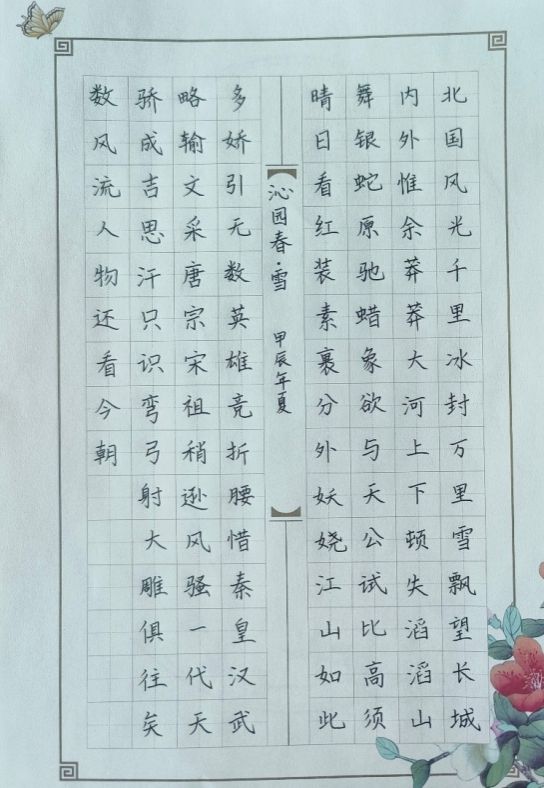 北国风光千里冰封万里雪飘望长城
内外惟余莽莽大河上下顿失滔滔山
舞银蛇原驰蜡象欲与天公试比高须
晴日看红装素裹分外妖娆江山如此
沁园春·雪 甲辰年夏
多娇引无数英雄竞折腰惜秦皇汉武
略输文采唐宗宋祖稍逊风骚一代天
骄成吉思汗只识弯弓射大雕俱往矣
数风流人物还看今朝